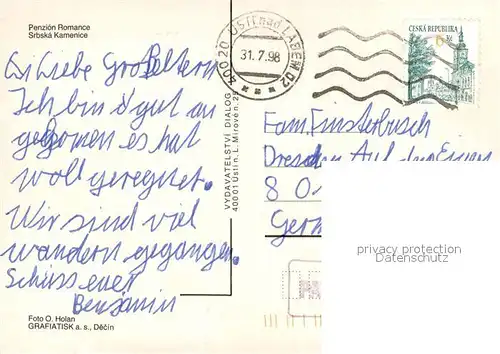 Penzión Romance
Srbská Kamenice
Liebe Großeltern
Ich bin gut an
gekomen es hat
woll geregnet.
Wir sind viel
wandern gegangen.
Schüss euer
Benjamin
Foto O. Holan
GRAFIATISK a. s., Děčín
VYDAVATELSTVÍ DIALOG
400 01 Ústí n. L. Mírové n.
400 20 ÚSTÍ nad LABEM 02
31.7.98
ČESKÁ REPUBLIKA
6 Kč
Fam. Finsterbusch
Dresden Auf
8 0
Germ
privacy protection
Datenschutz